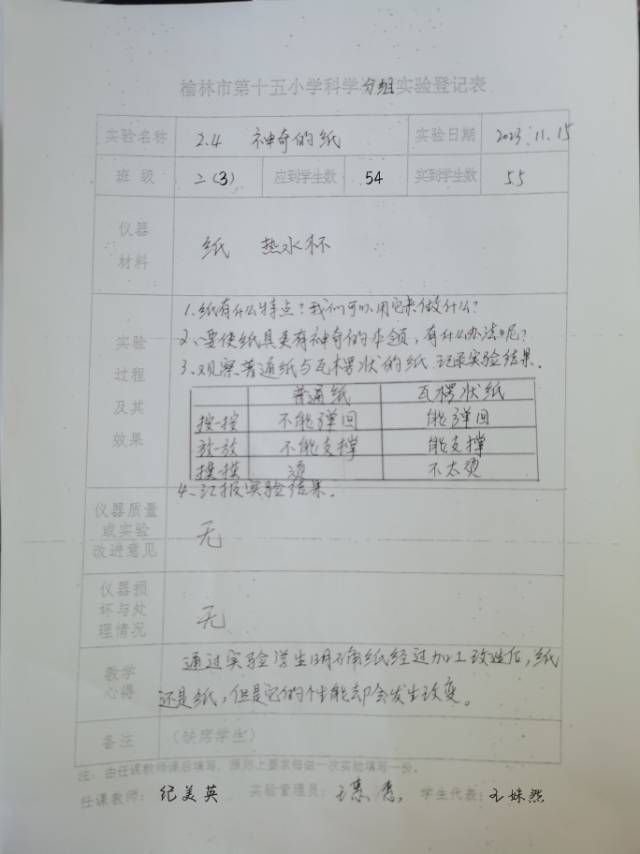 榆林市第十五小学科学分组实验登记表
实验名称 2.4 神奇的纸 实验日期 2023.11.15
班级 二(3) 应到学生数 54 实到学生数 55
仪器材料 纸 热水杯
实验过程及其效果
1、纸有什么特点？我们可以用它来做什么？
2、要使纸具更有神奇的本领，有什么办法呢？
3、观察普通纸与瓦楞状的纸 记录实验结果.
普通纸 瓦楞状纸
按一按 不能弹回 能弹回
放一放 不能支撑 能支撑
摸一摸 烫 不太烫
4、汇报实验结果.
仪器质量或实验改进意见 无
仪器损坏与处理情况 无
教学心得
通过实验学生明确纸经过加工改造后，纸
还是纸，但是它的性能却会发生改变。
备注 （缺席学生）
注：由任课教师课后填写，原则上要求每做一次实验填写一份。
任课教师：纪美英 实验管理员： 学生代表：王姝然